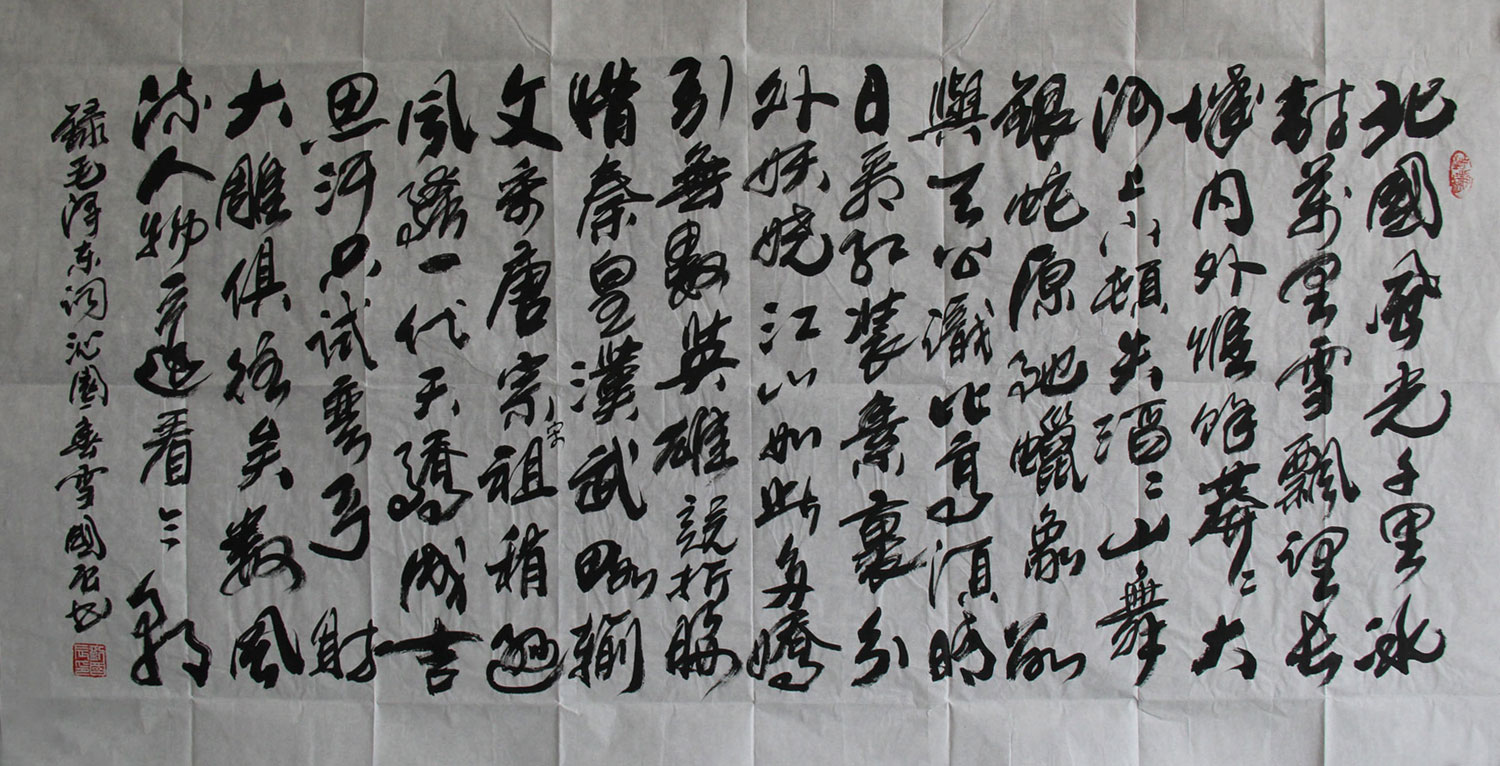 北國風光千里冰
封萬里雪飄長
城内外惟餘莽〻大
河上下頓失滔〻山舞
銀蛇原馳蠟象欲
與天公試比高須晴
日看紅裝素裹分
外妖娆江山如此多嬌
引無數英雄競折腰
惜秦皇漢武略輸
文采唐宗宋祖稍遜
風騷一代天驕成吉
思汗只識彎弓射
大雕俱往矣數風
流人物還看今朝
錄毛澤东词沁園春雪國